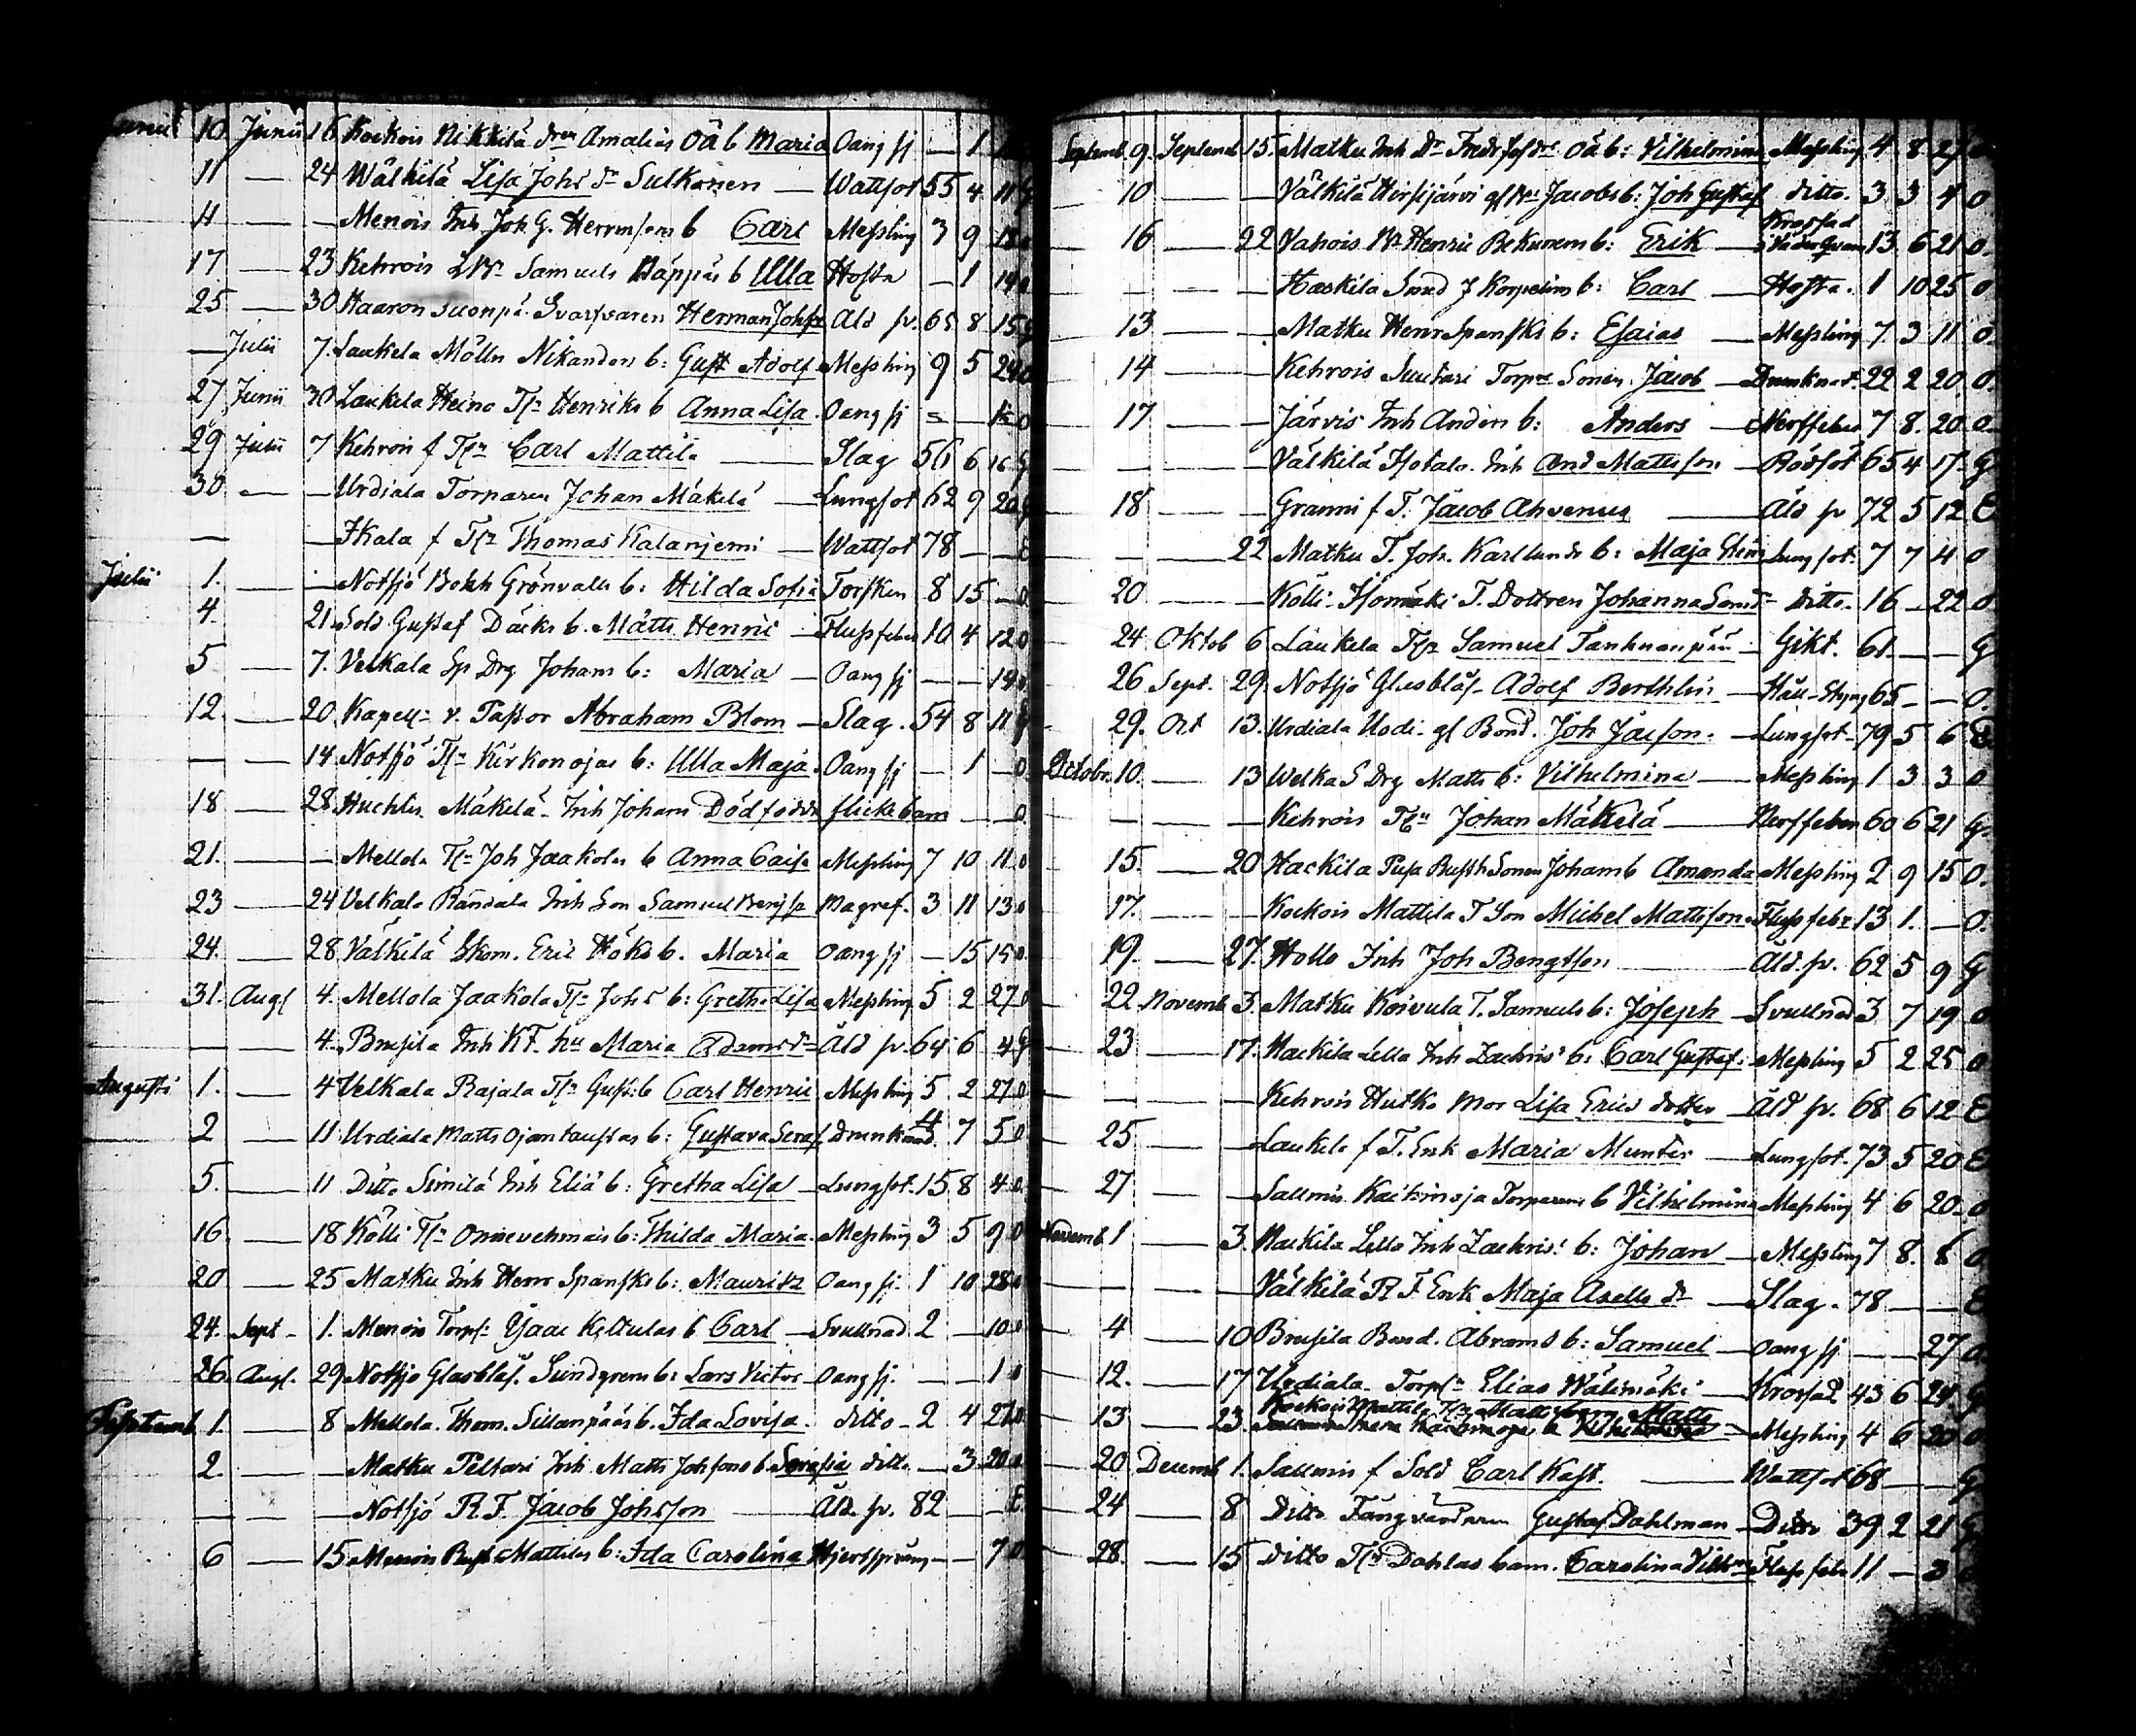 Junii 10 Junii 16 Kockois Nikkilä drn Amalias oä b Maria Oang sj — 1
11 — 24 Wälkilä Lisa Johs dr Sulkonen — Wattsot 55 4 11 G
11 — — Menois Inh Joh G. Hermsons b Carl Messling 3 9 18 o
17 — 23 Kehrois Samuels b Ulla Hosta — 1 14 o
25 — 30 Haaron Svarfvaren Herman Johss Åld sv. 65 8 15 G
— Julii 7. Laukela Mölln Nikanders b: Gust Adolf Messling 9 5 24 o
27 Junii 30 Laukela Heino Henriks b Anna Lisa Oang sj — — o
29 Julii 7 Kehrois f Carl Mattila — Slag 56 6 16 G
30 — — Urdiala Torparen Johan Mäkelä — Lungsot 62 9 20 G
— — Ikala f Thomas Kalaniemi — Wattsot 78 — — E
Julii 1. — Notsjö Bokh Grönvalls b: Hilda Sofia Torsken 8 15 — o
4. 21. Sold Gustaf Däcks b. Matts Henric — Flussfeber 10 4 12 o
5 — 7. Velkala Sp Drg Johans b: Maria — Oang sj — — 14 o
12. — 20 Kapell v. Pastor Abraham Blom — Slag. 54 8 11 G
— — 14 Notsjö Kirkonojas b: Ulla Maja. Oang sj — 1 — o
18 — 28. Huchtis Mäkilä Inh Johans Dödfödd flickebarn — — o.
21. — — Mellola Joh Jaakolas b Anna Caisa Messling 7 10 11 o
23 — 24 Velkala Ransala Inh Son Samuel Benjss Magref. 3 11 13 o
24. — 28 Välkilä Skom. Eric Höks b. Maria Oang sj — 15 15 o
31. Aug 4. Mellola Jaakola Johs b: Greth. Lisa Messling 5 2 27 o
— — 4. Brusila Inh K.F. hu Maria Adamsdr Åld sv. 64 6 4 G
Augusti 1. — 4 Velkala Rajala Gust: b Carl Henric Messling 5 2 27 o
2 — 11 Urdiala Matts Ojantaustas b: Gustava Seraf Drunknad. 7 5 o
5. — 11 Ditto Simila Inh Eliä b: Gretha Lisa — Lungsot. 15 8 4 o
16. — 18 Kölli b: Thilda Maria. Messling 3 5 9 o
20 — 25 Matku Inh Henr Spansks b: Mauritz Oang sj. 1 10 28 o
24. Sept — 1. Menois Torp. b Carl — Svullnad 2 — 10 o
26. Aug. 29 Notsjö Glasblås. Sundgrens b: Lars Victor — Oang sj. — — 1 o
Septemb 1. — 8 Mellola. Thom. Sillanpääs b. Ida Lovisa. ditto — 2 4 27 o
2. — — Matku Peltari Inh Matts Johsons b Serafia ditto — 3 20 o
— — — Notsjö R.F. Jacob Johsson — Åld. sv. 82 — — E
6 — 15 Menois Rust Mattilas b: Ida Carolina Hjertsprång — — 7 o
Septemb 9. Septemb 15. Matku Inh Dr Fredr dr oä b: Vilhelmina Messling 4 8 27
10 — — Välkilä Hirsijärvi Jacobs b: Joh Gustaf ditto. 3 3 4 o
16 — 22 Vahois Henric Bekurens b: Erik — Krossad i Väderqvarn 13. 6 21 o.
— — — Haskila Smed J Korpelins b: Carl — Hosta. 1 10 25 o
13 — — Matku Henr Spansks b: Esaias — Messling 7. 3 11 o.
14 — — Kehrois Suutari Torps Sonen Jacob — Drunknat. 22 2 20 o.
17 — — Järvis Inh Anders b: Anders — Nerffeber 7 8. 20 o.
— — — Välkilä Isotalo Inh And Mattsson — Rödsot 65 4 17 G
18 — — Granni f T. Jacob Ahvenus — Åld sv 72 5 12 E
— — 22 Matku T. Joh. Karllunds b: Maja Stina Lungsot. 7 7 4 o
20 — — Kölli Isomäki T. Dottren Johanna — Ditto. 16 — 22 o
24. Oktob 6 Laukela Samuel Tanhuanpää — Gikt. 61 — — G
26 Sept. 29. Notsjö Glasblås. Adolf Berthlin — Håll Styng 65 — — o.
29. Oct 13. Urdiala Uodi gl Bond. Joh Jacsson. — Lungsot — 79 5 6 E
Octobr. 10. — 13 Welka S Drg Matts b: Vilhelmina — Messling 1 3 3 o
— — — Kehrois Johan Mäkelä — Nerffeber 60 6 21 G.
15. — 20 Hackila Pusa Rusth Sonen Johans b Amanda Messling 2 9 15 o.
17. — — Kockois Mattila T Son Michel Mattsson Flussfebr 13 1. — o.
19. — 27. Hollo Inh Joh Bengtsson — Åld. sv. 62 5 9 G
22 Novemb 3. Matku Koivula T. Samuels b: Joseph — Svullnad 3 7 19 o
23 — 17. Hackila Lella Inh Zachris' b: Carl Gustaf. Messling 5 2 25 o
— — — Kehrois Hutko Mor Lisa Erics dotter — Åld sv. 68 6 12 E
25 — — Laukela f T. Enk Maria Munter — Lungsot. 73 5 20 E
27 — — Sallmis Kaikinoja Torparens b Vilhelmina Messling 4 6 20 o
Novemb 1 — 3. Hackila Lella Inh Zachris' b: Johan — Messling 7 8. 6 o
— — — Välkilä R F Enk Maja Axells dr — Slag. 78 — — E
4 — 10 Brusila Bond. Abrams b: Samuel — Oang sj — — 27 o
12. — 17 Urdiala Torp Elias Wälimäki — Krossad 43 6 24. G
13 — 23. Kockois Mattila Mattssons Matts — Messling 4 6 20 o
20 Decemb 1. Sallmis f Sold Carl Kast. — Wattsot 68 — — G
24 — 8 Ditto Fångvärdaren Gustaf Dahlman — Ditto 39 2 21 G
28. — 15 Ditto Dahlas barn. Carolina Vilhna Flussfeb 11 — 3